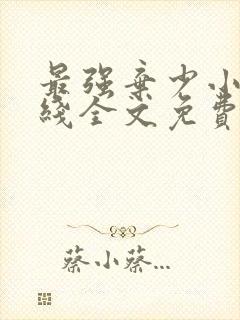 最强弃少小
线全文免费
蔡小蔡...